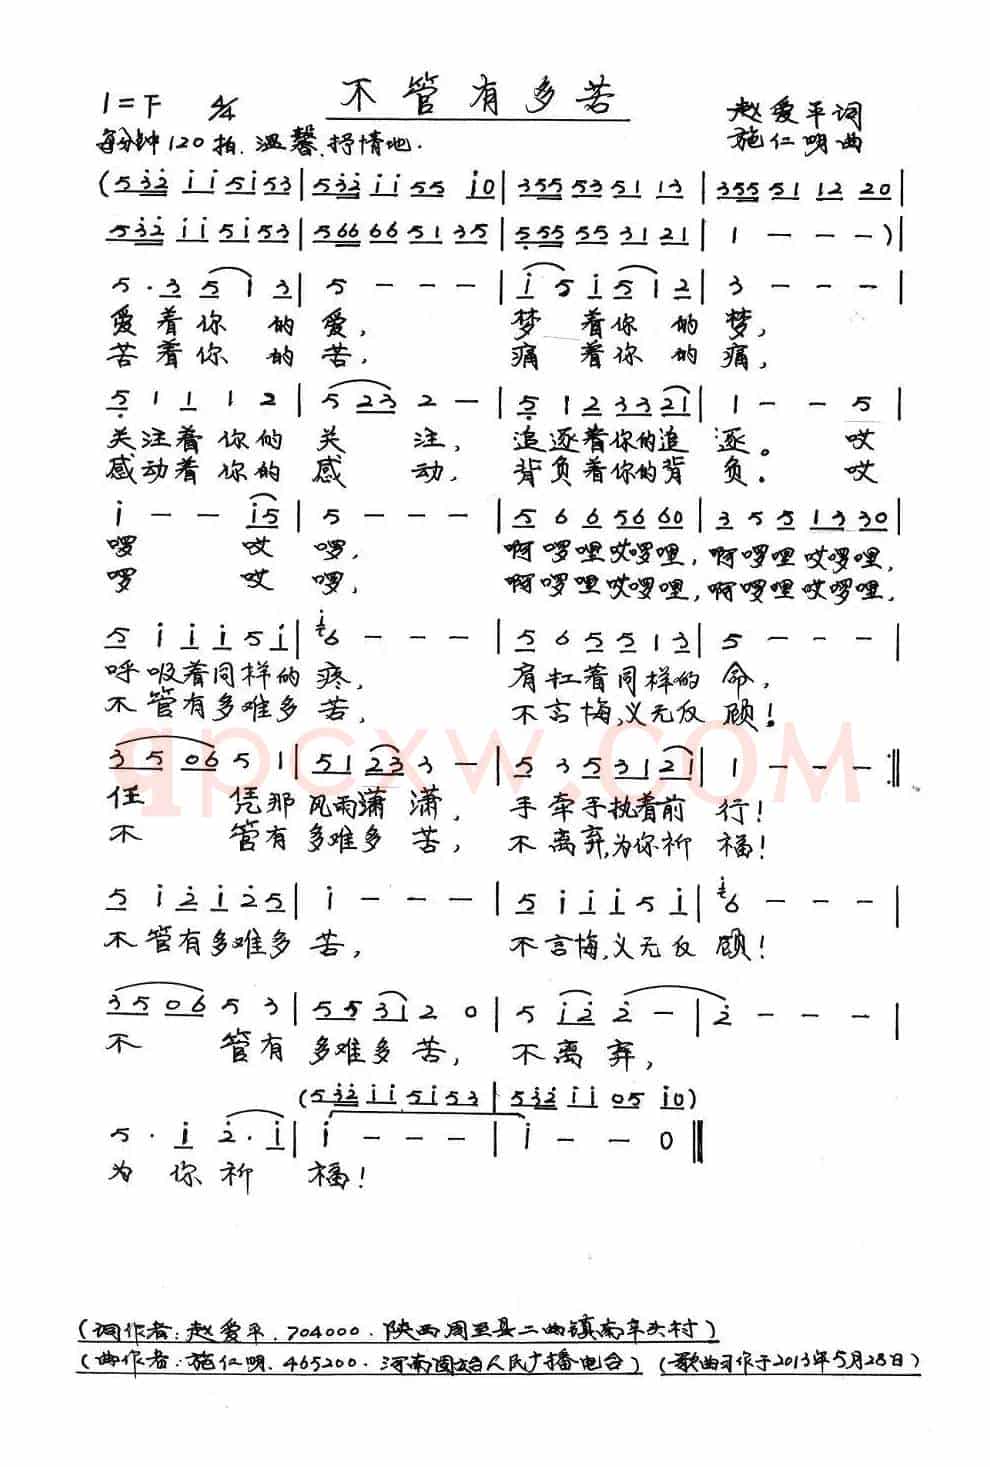 不管有多苦
1=F 4/4
赵爱平词
每分钟120拍.温馨.抒情地.
施仁明曲
(5 3 2 i i 5 i 5 3 | 5 3 2 i i 5 5 i 0 | 3 5 5 5 3 5 1 1 3 | 3 5 5 5 1 1 2 2 0 |
5 3 2 i i 5 i 5 3 | 5 6 6 6 6 5 1 3 5 | 5 5 5 5 5 3 1 2 1 | 1 — — — ) |
5 · 3 5 1 3 | 5 — — — | i 5 i 5 1 2 | 3 — — — |
爱着你的爱, 梦着你的梦,
苦着你的苦, 痛着你的痛,
5 1 1 1 2 | 5 2 3 2 — | 5 1 2 3 3 2 1 | 1 — — 5 |
关注着你的关注, 追逐着你的追逐。哎
感动着你的感动, 背负着你的背负。哎
i — — i 5 | 5 — — — | 5 6 6 5 6 6 0 | 3 5 5 1 3 3 0 |
啰哎啰, 啊啰哩哎啰哩, 啊啰哩哎啰哩,
啰哎啰, 啊啰哩哎啰哩, 啊啰哩哎啰哩.
5 i i i 5 i | 6 — — — | 5 6 5 5 1 3 | 5 — — — |
呼吸着同样的疼, 肩扛着同样的命,
不管有多难多苦, 不言悔,义无反顾!
qpcxw.COM
3 5 0 6 5 1 | 5 1 2 3 3 — | 5 3 5 3 1 2 i | 1 — — — :||
任凭那风雨潇潇, 手牵手执着前行!
不管有多难多苦, 不离弃,为你祈福!
5 i 2 i 2 5 | i — — — | 5 i i i 5 i | 6 — — — |
不管有多难多苦, 不言悔,义无反顾!
3 5 0 6 5 3 | 5 5 3 i 2 0 | 5 i 2 2 — | 2 — — — |
不管有多难多苦, 不离弃,
(5 3 2 i i 5 i 5 3 | 5 3 2 i i 0 5 i 0)
5 · i 2 · i | i — — — | i — — 0 ||
为你祈福!
(词作者:赵爱平.704000.陕西周至县二曲镇南辛头村)
(曲作者:施仁明.465200.河南固始人民广播电台) (歌曲习作于2013年5月28日)